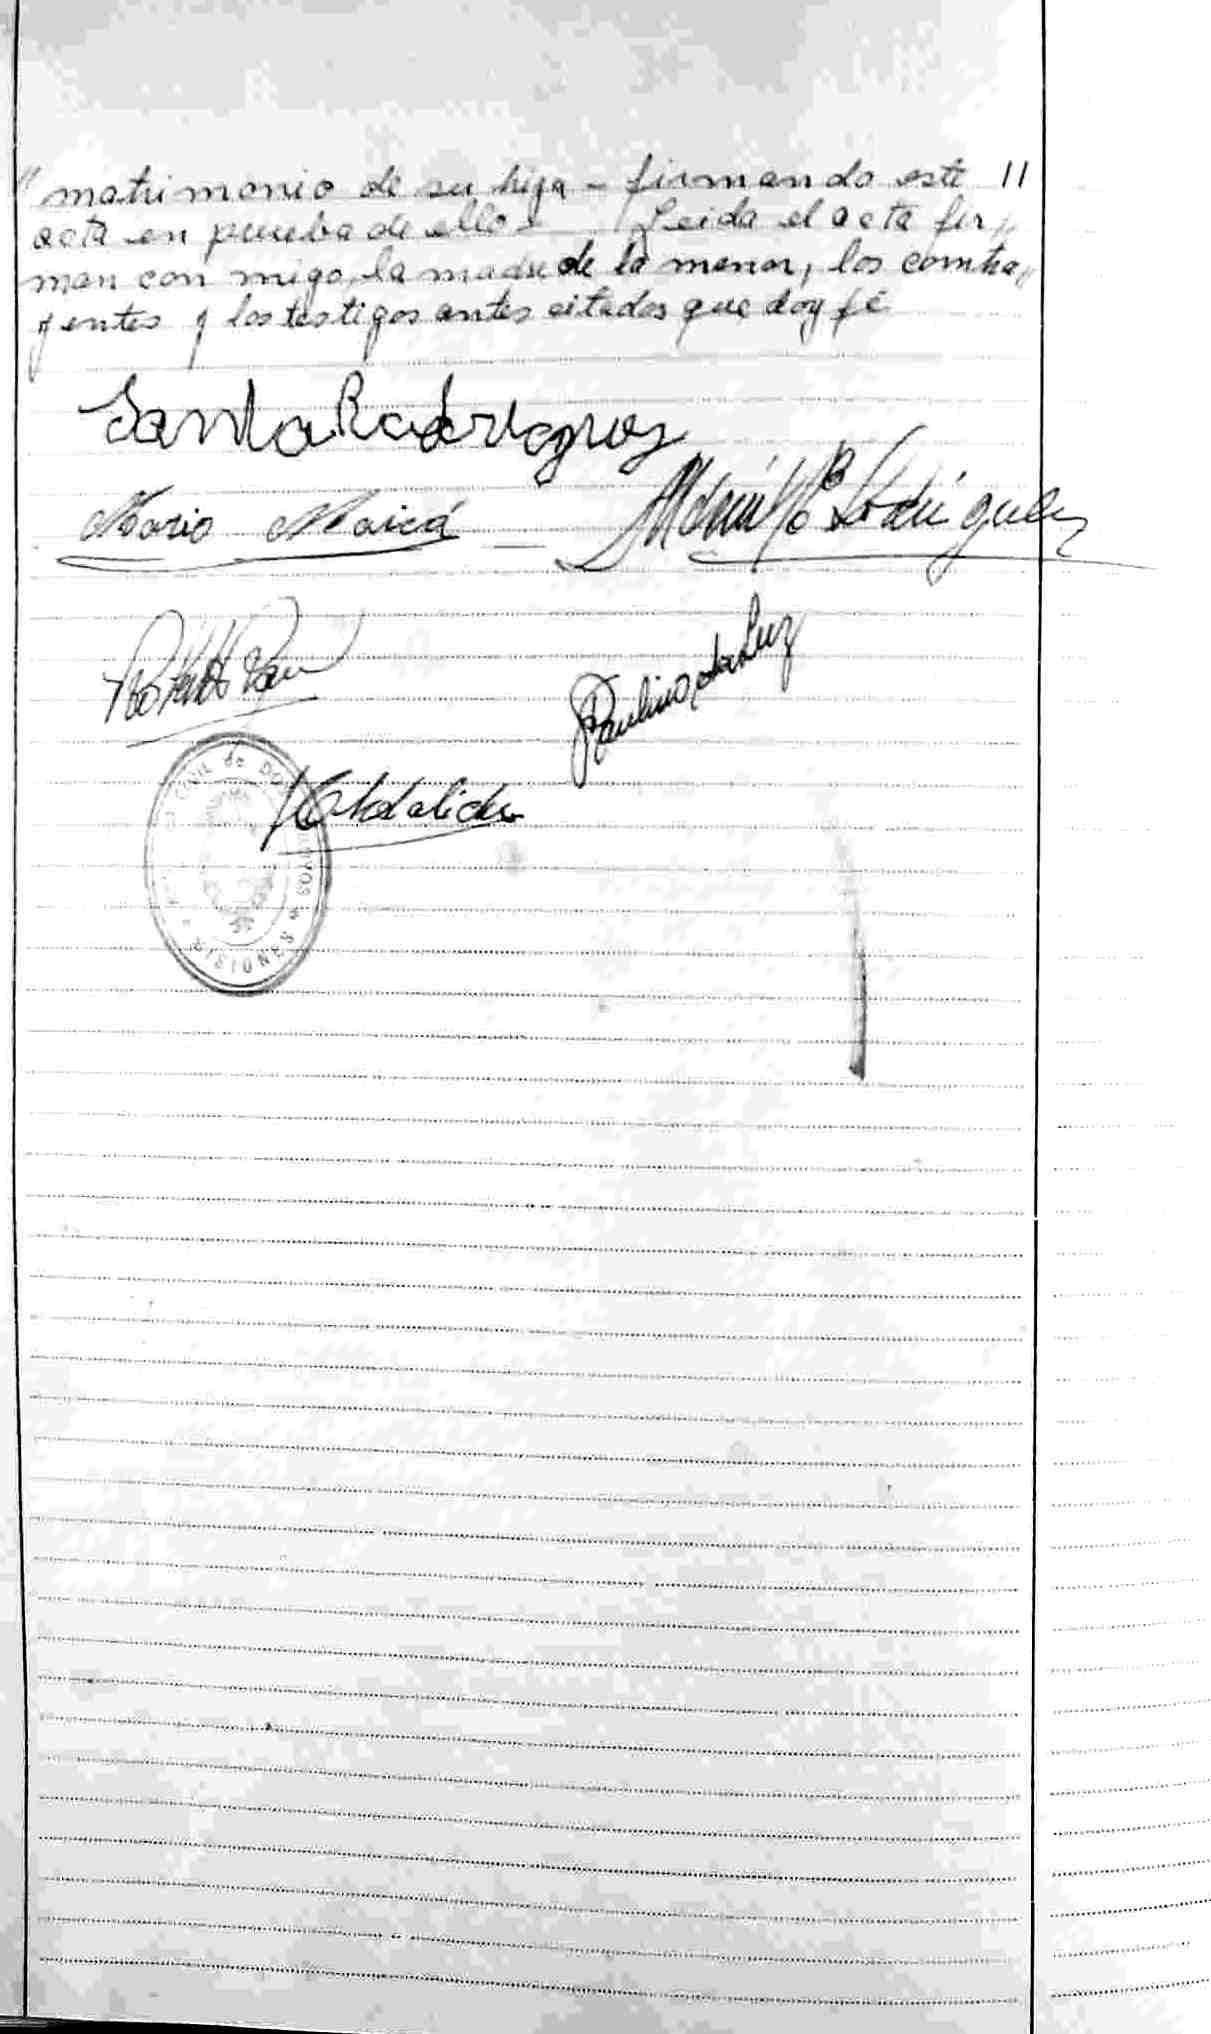 " matrimonio de su hija - firmando este 11
acta en prueba de ello - Leida el acta fir,,
man con migo, la madre de la menor, los contra,,
yentes y los testigos antes citados que doy fé
Santa Rodriguez
Mario Maicá
Rodriguez
Paulino da Luz
CIVIL de DOS * MISIONES